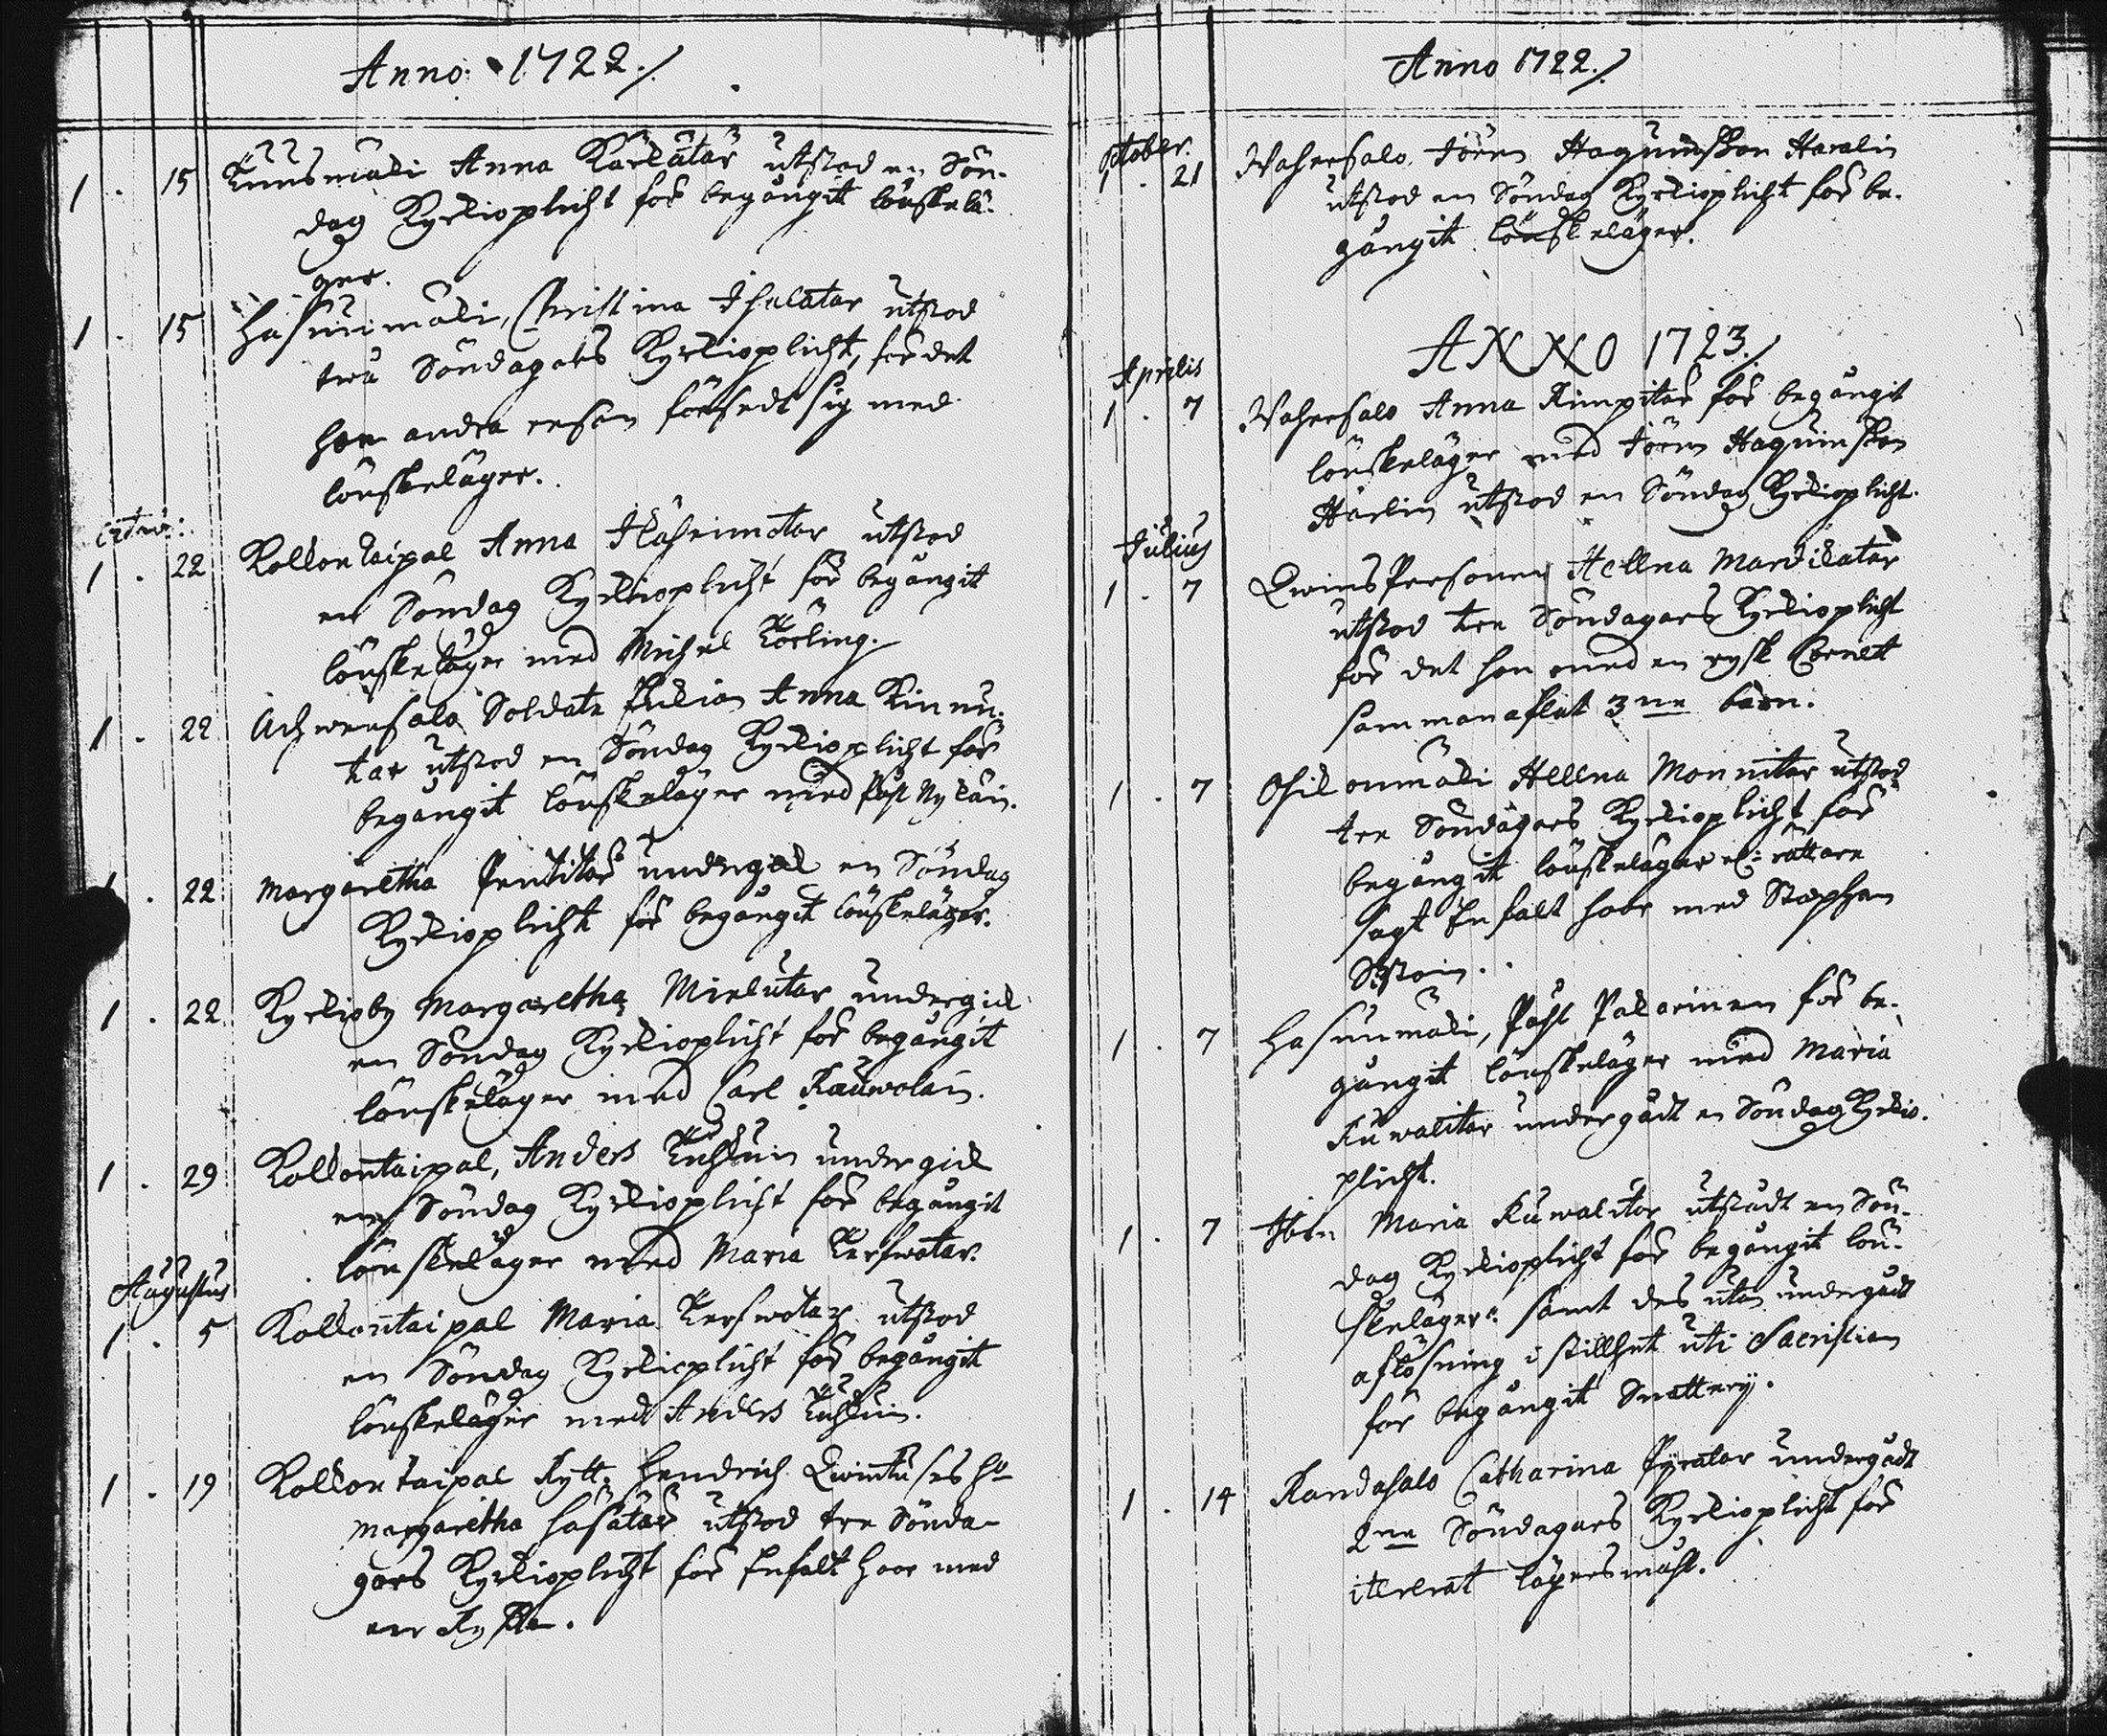 Anno 1722./.
1 . 15 Kunsmäki Anna Kärlätär utstod en Sön-
dag Kyrkioplicht för begångit lönskelä-
ger.
1 . 15 Hasunmäki, Christina Ihalatar utstod
twå Söndagars Kyrkioplicht, för det
hon andra resan försedt sig med
lönskeläger.
1 . 22 Kolkontaipal Anna utstod
en Söndag Kyrkioplicht för begångit
lönskeläger med Michel Törling.
1 . 22 Soldate Enkian Anna Kinnu-
tar utstod en Söndag Kyrkioplicht för
begangit lönskeläger med Påhl Nykäin.
1 . 22 Margaretha Penttitär undergick en Söndag
Kyrkioplicht för begångit lönskeläger.
1 . 22 Kyrkioby Margaretha Mielutar undergick
en Söndag Kyrkioplicht för begångit
lönskeläger med Carl Kauwolain.
1 . 29 Kolkontaipal, Anders undergick
en Söndag Kyrkioplicht för begångit
lönskeläger med Maria Terfwotar.
Augustus
1 . 5 Kolkontaipal Maria Terfwotar utstod
en Söndag Kyrkioplicht för begångit
lönskeläger med Anders
1 . 19 Kolkontaipal Rytt: Hendrich Qwintuses Hu
Margaretha Häfätär utstod tre Sönda-
gars Kyrkioplicht för Enfalt hoor med
en Rysse.
Anno 1722./.
October.
1 . 21 Wahersalo, Jören Haquinsson Harlin
utstod en Söndag Kyrkioplicht för be-
gångit lönskeläger.
ANNO 1723./
Aprilis
1 . 7 Wahersalo Anna Rimpitär för begångit
lönskeläger med Jören Haquinsson
Harlin utstod en Söndag Kyrkioplicht.
Julius
1 . 7 Qwins Personen Hellna Mardikatar
utstod tre Söndagars Kyrkioplicht
för det hon med en rysk Cornett
sammanaflat 3ne barn.
1 . 7 Hellna Monnitar utstod
tre Söndagars Kyrkioplicht för
begångit lönskeläger el: rättare
sagt Enfalt hoor med Stephan
1 . 7 Hasunmäki, Påhl Pakarinen för be-
gångit lönskeläger med Maria
Kuwalitar undergådt en Söndag Kyrkio-
plicht.
1 . 7 Maria Kuwalitar utstådt en Sön-
dag Kyrkioplicht för begångit lön-
skeläger: samt des utan undergådt
aflösning i stillhet uti Sacristian
för begångit Snatterij.
1 . 14 Randasalo Catharina Pyratar undergådt
2ne Söndagars Kyrkioplicht för
itererat lägersmåhl.